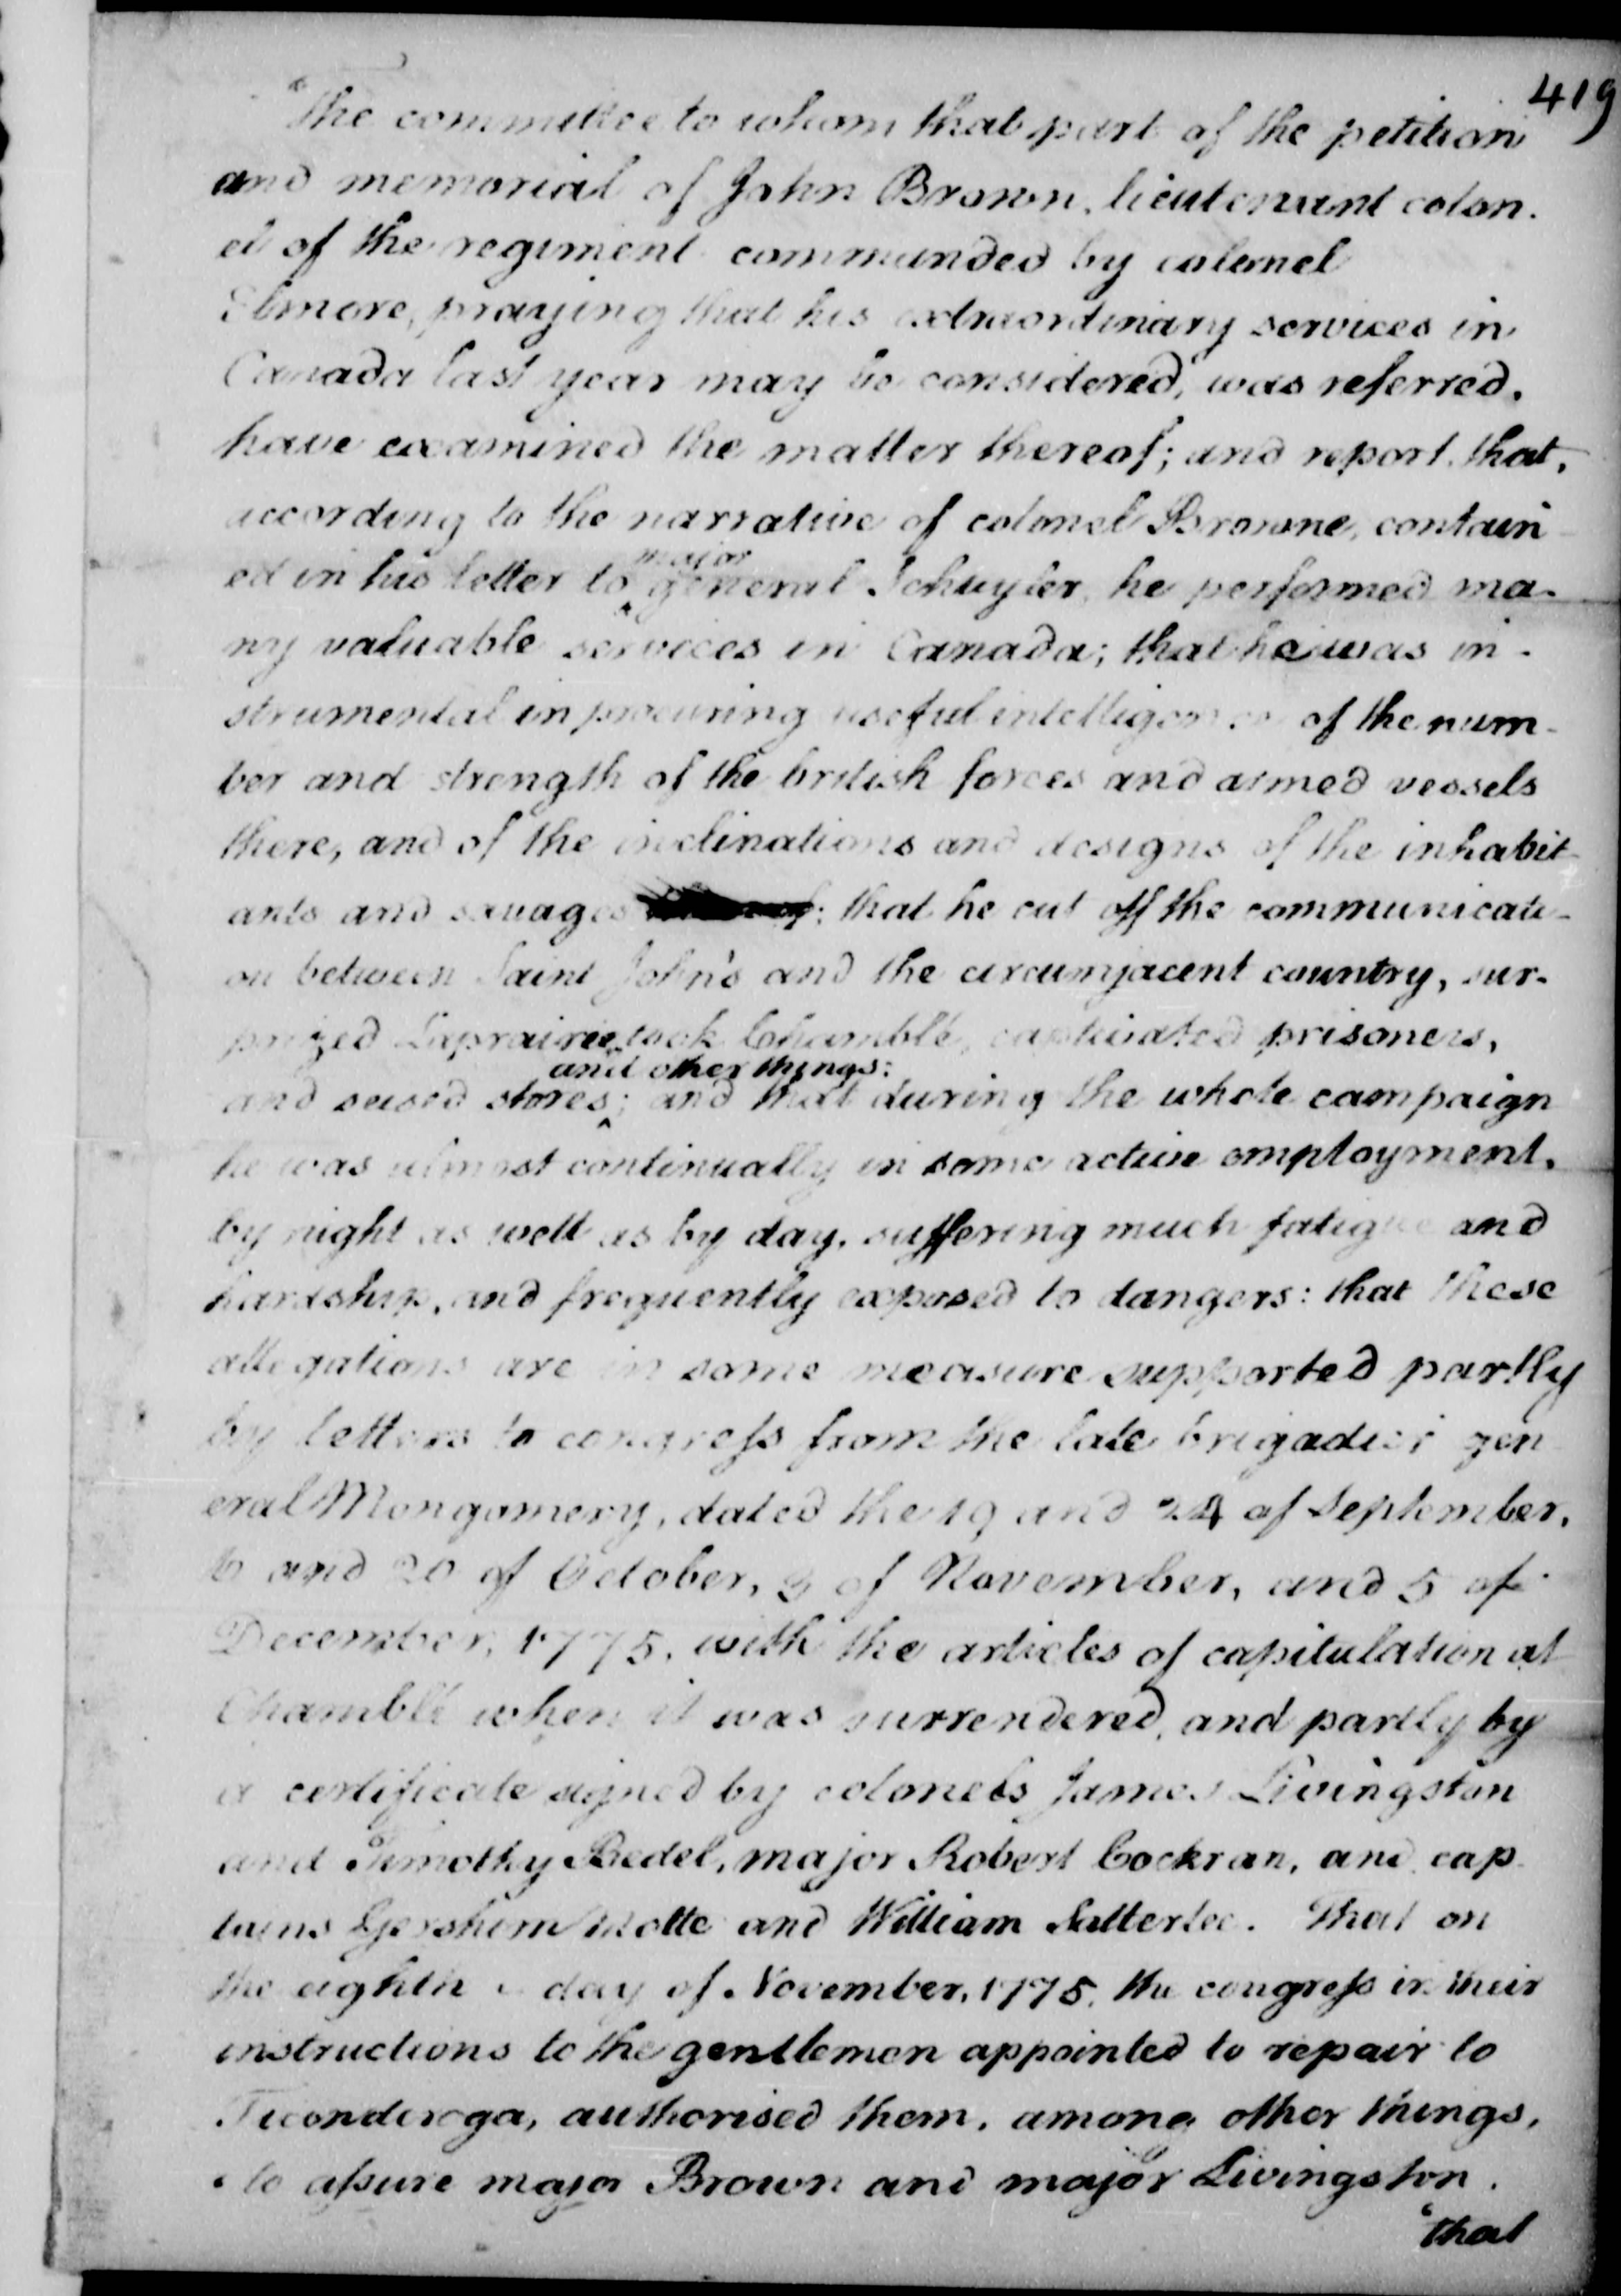 419
The committee to whom that part of the petition
and memorial of John Brown, lieutenant colon-
el of the regiment commanded by colonel
Elmore, praying that his extraordinary services in
Canada last year may be considered, was referred,
have examined the matter thereof; and report, that,
according to the narrative of colonel Browne, contain
major
ed in his letter to ^ general Schuyler, he performed ma-
ny valuable services in Canada; that he was in-
strumental in procuring useful intelligence of the num-
ber and strength of the british forces and armed vessels
there, and of the inclinations and designs of the inhabit-
ants and savages; that he cut off the communicati-
on between Saint John's and the circumjacent country, sur-
prized Laprairie, took Chamblé, captivated prisoners,
and other things:
and seised stores ^; and that during the whole campaign
he was almost continually in some active employment,
by night as well as by day, suffering much fatigue and
hardship, and frequently exposed to dangers: that these
allegations are in some measure supported partly
by letters to congress from the late brigadier gen
eral Mongomery, dated the 19 and 24 of September,
and 20 of October, 3 of November, and 5 of
December, 1775, with the articles of capitulation at
Chamblé when it was surrendered, and partly by
a certificate signed by colonels James Livingston
and Timothy Bedel, major Robert Cockran, and cap
tains Gershem Motte and William Satterlee. That on
the eighth day of November, 1775, the congress in their
instructions to the gentlemen appointed to repair to
Ticonderoga, authorised them, among other things,
'to assure major Brown and major Livingston
'that